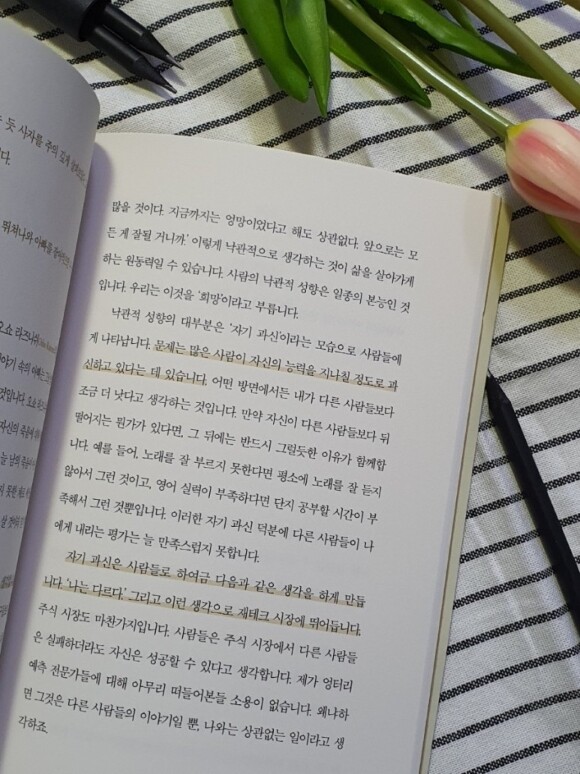 듯 사자를 주의 깊게
다.
뛰쳐나와 아빠를
오쇼 라즈니쉬
야기 속의 아빠는 그
것입니다. 오쇼
자신의 죽음에
늘 남의
많을 것이다. 지금까지는 엉망이었다고 해도 상관없다. 앞으로는 모
든 게 잘될 거니까.' 이렇게 낙관적으로 생각하는 것이 삶을 살아가게
하는 원동력일 수 있습니다. 사람의 낙관적 성향은 일종의 본능인 것
입니다. 우리는 이것을 '희망'이라고 부릅니다.
낙관적 성향의 대부분은 '자기 과신'이라는 모습으로 사람들에
게 나타납니다. 문제는 많은 사람이 자신의 능력을 지나칠 정도로 과
신하고 있다는 데 있습니다. 어떤 방면에서든 내가 다른 사람들보다
조금 더 낫다고 생각하는 것입니다. 만약 자신이 다른 사람들보다 뒤
떨어지는 뭔가가 있다면, 그 뒤에는 반드시 그럴듯한 이유가 함께합
니다. 예를 들어, 노래를 잘 부르지 못한다면 평소에 노래를 잘 듣지
않아서 그런 것이고, 영어 실력이 부족하다면 단지 공부할 시간이 부
족해서 그런 것뿐입니다. 이러한 자기 과신 덕분에 다른 사람들이 나
에게 내리는 평가는 늘 만족스럽지 못합니다.
자기 과신은 사람들로 하여금 다음과 같은 생각을 하게 만듭
니다. '나는 다르다.' 그리고 이런 생각으로 재테크 시장에 뛰어듭니다.
주식 시장도 마찬가지입니다. 사람들은 주식 시장에서 다른 사람들
은 실패하더라도 자신은 성공할 수 있다고 생각합니다. 제가 엉터리
예측 전문가들에 대해 아무리 떠들어본들 소용이 없습니다. 왜냐하
면 그것은 다른 사람들의 이야기일 뿐, 나와는 상관없는 일이라고 생
각하죠.